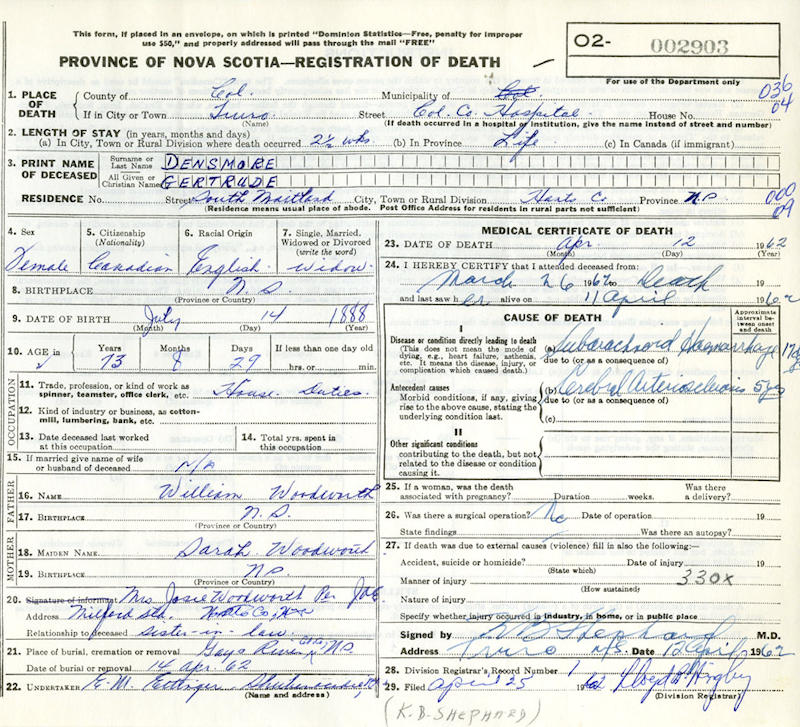 This form, if placed in an envelope, on which is printed "Dominion Statistics—Free, penalty for improper
use $50," and properly addressed will pass through the mail "FREE"
O2- 002903
PROVINCE OF NOVA SCOTIA—REGISTRATION OF DEATH
For use of the Department only
036
04
1. PLACE OF DEATH County of Col. Municipality of
If in City or Town Truro Street Col. Co. Hospital House No.
(Name) (If death occurred in a hospital or institution, give the name instead of street and number)
2. LENGTH OF STAY (in years, months and days)
(a) In City, Town or Rural Division where death occurred 2½ wks (b) In Province Life (c) In Canada (if immigrant)
3. PRINT NAME OF DECEASED Surname or Last Name DENSMORE
All Given or Christian Names GERTRUDE
RESIDENCE No. Street South Maitland City, Town or Rural Division Hants Co Province N.S.
000
09
(Residence means usual place of abode. Post Office Address for residents in rural parts not sufficient)
4. Sex 5. Citizenship (Nationality) 6. Racial Origin 7. Single, Married, Widowed or Divorced (write the word)
Female Canadian English Widow
8. BIRTHPLACE N.S.
(Province or Country)
9. DATE OF BIRTH July 14 1888
(Month) (Day) (Year)
10. AGE in Years Months Days If less than one day old
73 8 29 hrs. or min.
OCCUPATION
11. Trade, profession, or kind of work as spinner, teamster, office clerk, etc. House Duties
12. Kind of industry or business, as cotton-mill, lumbering, bank, etc.
13. Date deceased last worked at this occupation
14. Total yrs. spent in this occupation
15. If married give name of wife or husband of deceased N/A
FATHER
16. NAME William Woodworth
17. BIRTHPLACE N.S.
(Province or Country)
MOTHER
18. MAIDEN NAME Sarah Woodworth
19. BIRTHPLACE N.S.
(Province or Country)
20. Signature of informant Mrs Josie Woodworth Per
Address Milford Stn, Hants Co,
Relationship to deceased sister-in-law
21. Place of burial, cremation or removal Gays River NS
Date of burial or removal 14 Apr. 62
22. UNDERTAKER E.M. Ettinger Shubenacadie,
(Name and address)
MEDICAL CERTIFICATE OF DEATH
23. DATE OF DEATH Apr. 12 1962
(Month) (Day) (Year)
24. I HEREBY CERTIFY that I attended deceased from:
March 26 1962 to Death
and last saw her alive on 11 April 1962
CAUSE OF DEATH
Approximate interval between onset and death
I
Disease or condition directly leading to death
(This does not mean the mode of dying, e.g., heart failure, asthenia, etc. It means the disease, injury, or complication which caused death.)
(a) Subarachnoid Haemorrhage 17 dys
due to (or as a consequence of)
Antecedent causes
Morbid conditions, if any, giving rise to the above cause, stating the underlying condition last.
(b) Cerebral Arteriosclerosis 5 yrs
due to (or as a consequence of)
(c)
II
Other significant conditions
contributing to the death, but not related to the disease or condition causing it.
25. If a woman, was the death associated with pregnancy? Duration weeks. Was there a delivery?
26. Was there a surgical operation? No Date of operation 19
State findings Was there an autopsy?
27. If death was due to external causes (violence) fill in also the following:—
Accident, suicide or homicide? Date of injury 19
(State which)
Manner of injury 330X
(How sustained)
Nature of injury
Specify whether injury occurred in industry, in home, or in public place
Signed by K B Shephard M.D.
Address Truro N.S. Date 12 April 1962
28. Division Registrar's Record Number 1
29. Filed April 25 1962
(Division Registrar)
(K.B. SHEPHARD)